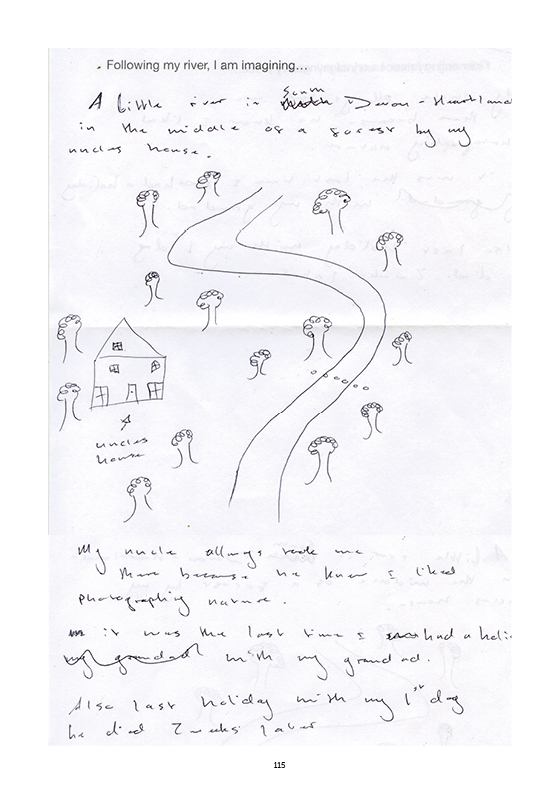 Following my river, I am imagining...
A little river in Devon - Heartland
in the middle of a forest by my
uncles house.
uncles
house
My uncle allways took me
there because he knew I liked
photographing nature.
it was the last time I had a holi
my grandad with my grandad.
Also last holiday with my 1st dog
he died 2 weeks later
115